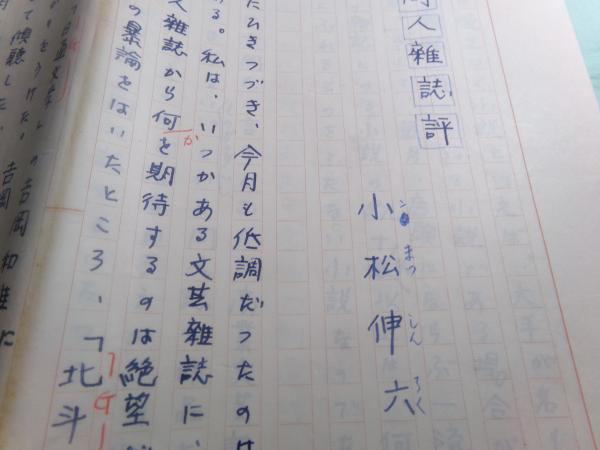 人雜誌評
小松伸六
まつ しん ろく
ひきつづき、今月も低調だったのは
る。私は、いつかある文芸雑誌に、
人雑誌から何を期待するのは絶望
か
の暴論をはいたところ、「北斗
りをうけた。吉岡和雄に
て傾聴した。吉岡